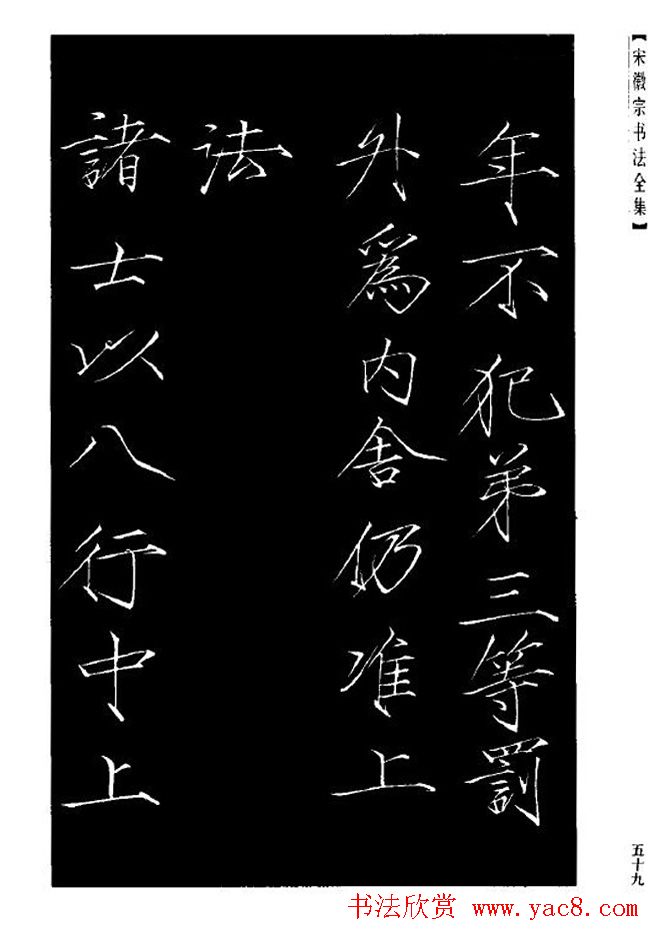 【宋徽宗书法全集】
年不犯弟三等罰
外爲内舍仍准上
法
諸士以八行中上
五十九
书法欣赏 www.yac8.com